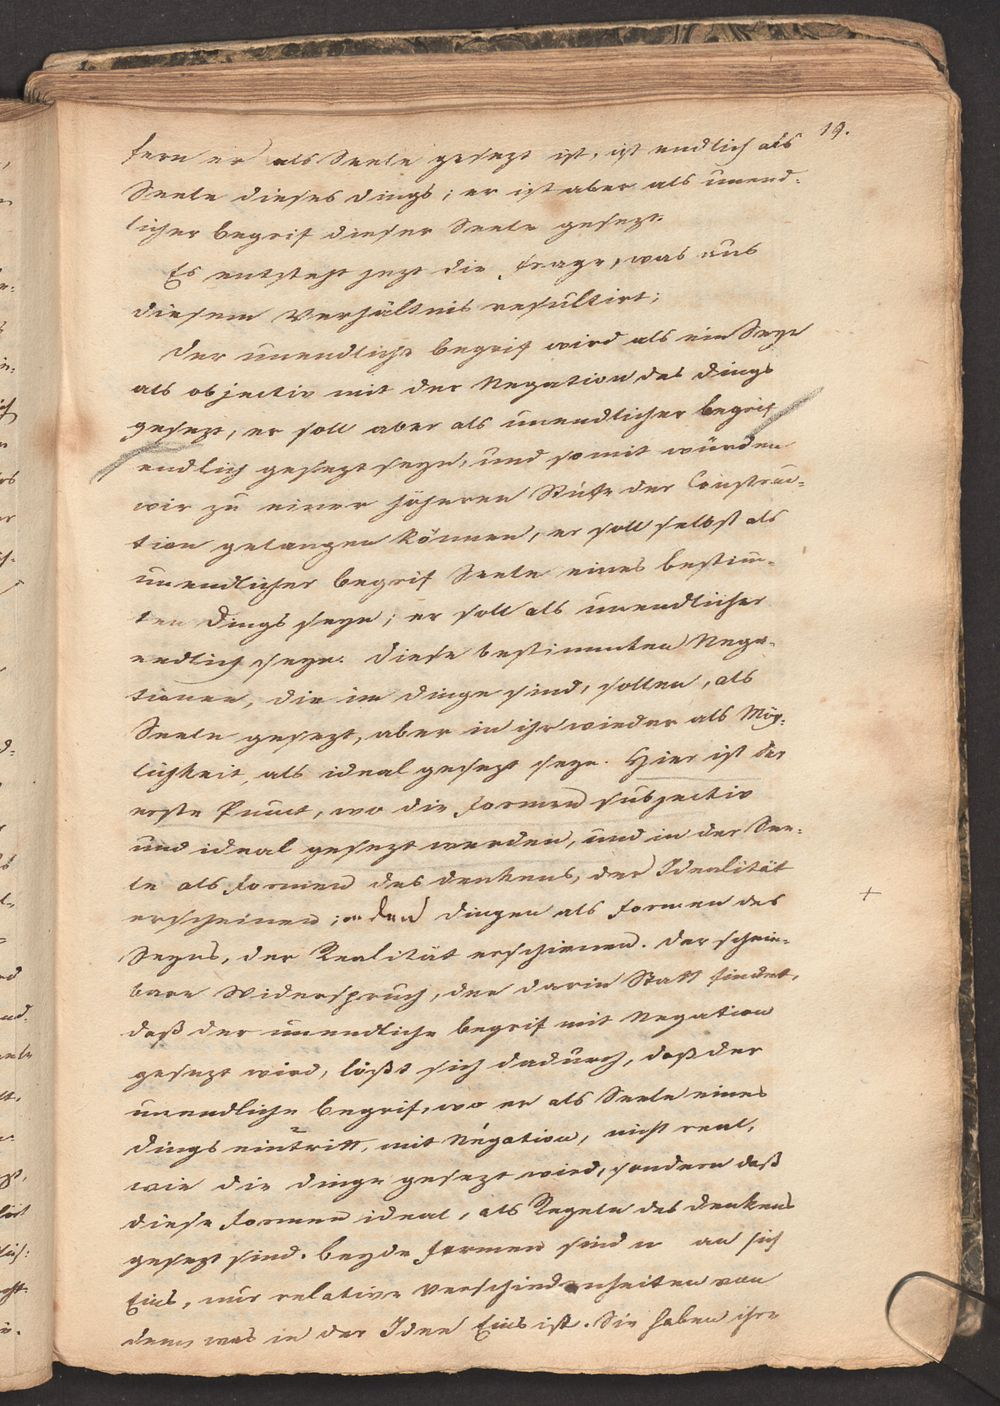 19.
fern er als Seele gesezt ist, ist endlich als
Seele dieses Dings; er ist aber als unend-
licher Begrif dieser Seele gesezt.
Es entsteht jezt die Frage, was aus
diesem Verhältnis resultirt;
Der unendliche Begrif wird als ein Seyn
als objectiv mit der Negation des Dings
gesezt, er soll aber als unendlicher Begrif
endlich gesezt seyn, und somit würden
wir zu einer höheren Stufe der Construc-
tion gelangen können, er soll selbst als
unendlicher Begrif Seele eines bestim-
ten Dings seyn; er soll als unendlicher
endlich seyn. Diese bestimmten Nega-
tionen, die im Dinge sind, sollen, als
Seele gesezt, aber in ihr wieder als Mög-
lichkeit, als ideal gesezt seyn. Hier ist der
erste Punct, wo die Formen subjectiv
und ideal gesezt werden, und in der See-
le als Formen des Denkens, der Idealität
erscheinen; den Dingen als Formen des
Seyns, der Realität erschienen. Der schein-
bare Widerspruch, der darin Statt findet,
daß der unendliche Begrif mit Negation
gesezt wird, lößt sich dadurch, daß der
unendliche Begrif, wo er als Seele eines
Dings eintritt, mit Negation, nicht real,
wie die Dinge gesezt wird, sondern daß
diese Formen ideal, als Regeln des Denkens
gesezt sind. Beyde Formen sind an sich
Eins, nur relative Verschiedenheiten von
dem, was in der Idee Eins ist. Sie haben ihre